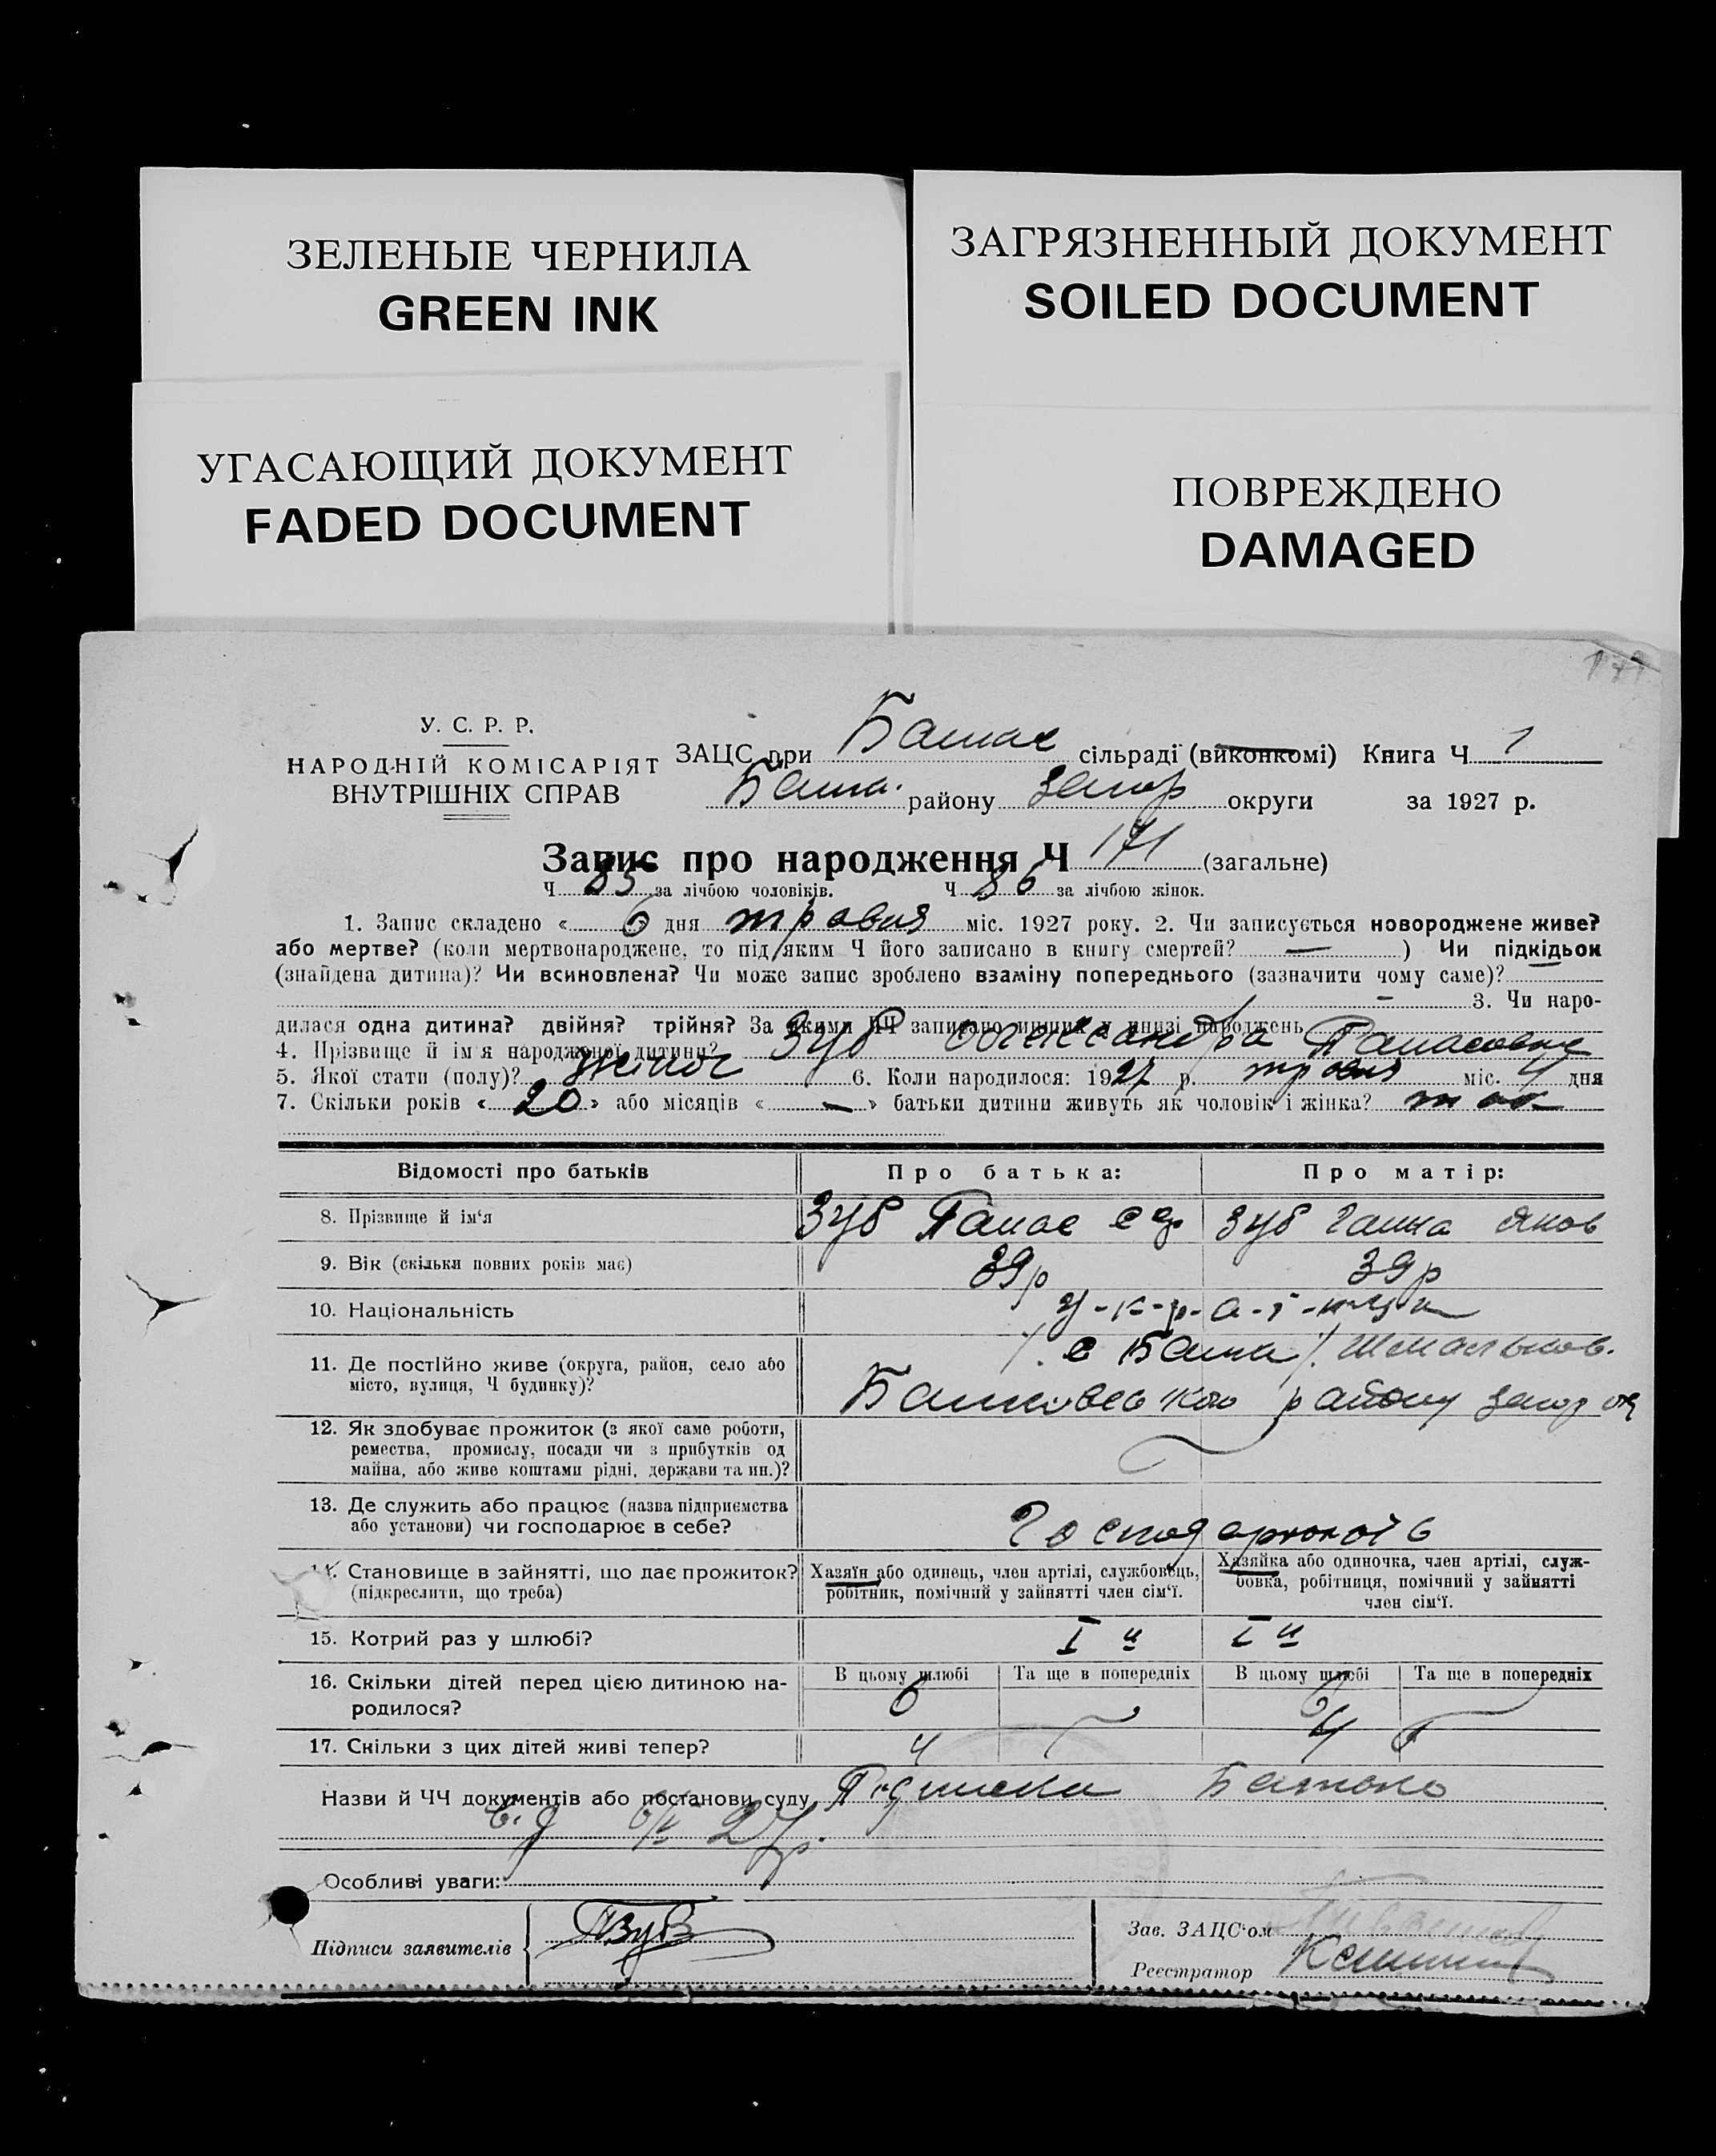 ЗЕЛЕНЫЕ ЧЕРНИЛА
GREEN INK
ЗАГРЯЗНЕННЫЙ ДОКУМЕНТ
SOILED DOCUMENT
УГАСАЮЩИЙ ДОКУМЕНТ
FADED DOCUMENT
ПОВРЕЖДЕНО
DAMAGED
171
У. С. Р. Р.
НАРОДНІЙ КОМІСАРІЯТ
ВНУТРІШНІХ СПРАВ
ЗАЦС при сільраді (виконкомі) Книга Ч 1
району округи за 1927 р.
Запис про народження Ч 171 (загальне)
Ч 85 за лічбою чоловіків. Ч 86 за лічбою жінок.
1. Запис складено « 6 дня травня міс. 1927 року. 2. Чи записується новороджене живе?
або мертве? (коли мертвонароджене, то під яким Ч його записано в книгу смертей? — ) Чи підкідьок
(знайдена дитина)? Чи всиновлена? Чи може запис зроблено взаміну попереднього (зазначити чому саме)?
- 3. Чи наро-
дилася одна дитина? двійня? трійня? За якими ЧЧ записано инших у книзі народжень
4. Прізвище й ім'я народженої дитини? Зуб Олександра Панасовна
5. Якої стати (полу)? жіноч 6. Коли народилося: 1927 р. травня міс. 4 дня
7. Скільки років « 20 » або місяців « — » батьки дитини живуть як чоловік і жінка? так
Відомості про батьків Про батька: Про матір:
8. Прізвище й ім'я Зуб Панас Зуб Ганна Яков
9. Вік (скільки повних років має) 39 р 39 р
10. Національність У-к-р-а-ї-нці
11. Де постійно живе (округа, район, село або
місто, вулиця, Ч будинку)? району
12. Як здобуває прожиток (з якої саме роботи,
ремества, промислу, посади чи з прибутків од
майна, або живе коштами рідні, держави та ин.)?
13. Де служить або працює (назва підприємства
або установи) чи господарює в себе?
14. Становище в зайнятті, що дає прожиток?
(підкреслити, що треба)
Хазяїн або одинець, член артілі, службовець,
робітник, помічний у зайнятті член сім'ї.
Хазяйка або одиночка, член артілі, служ-
бовка, робітниця, помічний у зайнятті
член сім'ї.
15. Котрий раз у шлюбі? I й I й
16. Скільки дітей перед цією дитиною на-
родилося?
В цьому шлюбі Та ще в попередніх В цьому шлюбі Та ще в попередніх
6 6
17. Скільки з цих дітей живі тепер? 4 4
Назви й ЧЧ документів або постанови суду Підписка Батька
27 р.
Особливі уваги:
Підписи заявителів ПЗуб
Зав. ЗАЦС'ом
Реєстратор